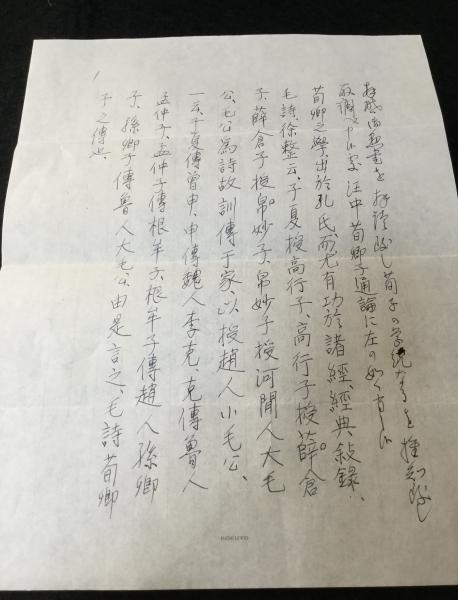 拝啓御懇書を拝読致し荀子の学統を
取調べ申候処汪中荀卿子通論に左の如く有之候
荀卿之學、出於孔氏、而尤有功於諸經、經典敍錄、
毛詩、徐整云、子夏授高行子、高行子授薛倉
子、薛倉子授帛妙子、帛妙子授河間人大毛
公、毛公爲詩故訓傳于家、以授趙人小毛公、
一云、子夏傳曾申、申傳魏人李克、克傳魯人
孟仲子、孟仲子傳根牟子、根牟子傳趙人孫卿
子、孫卿子傳魯人大毛公、由是言之、毛詩荀卿
子之傳也、
KOKUYO